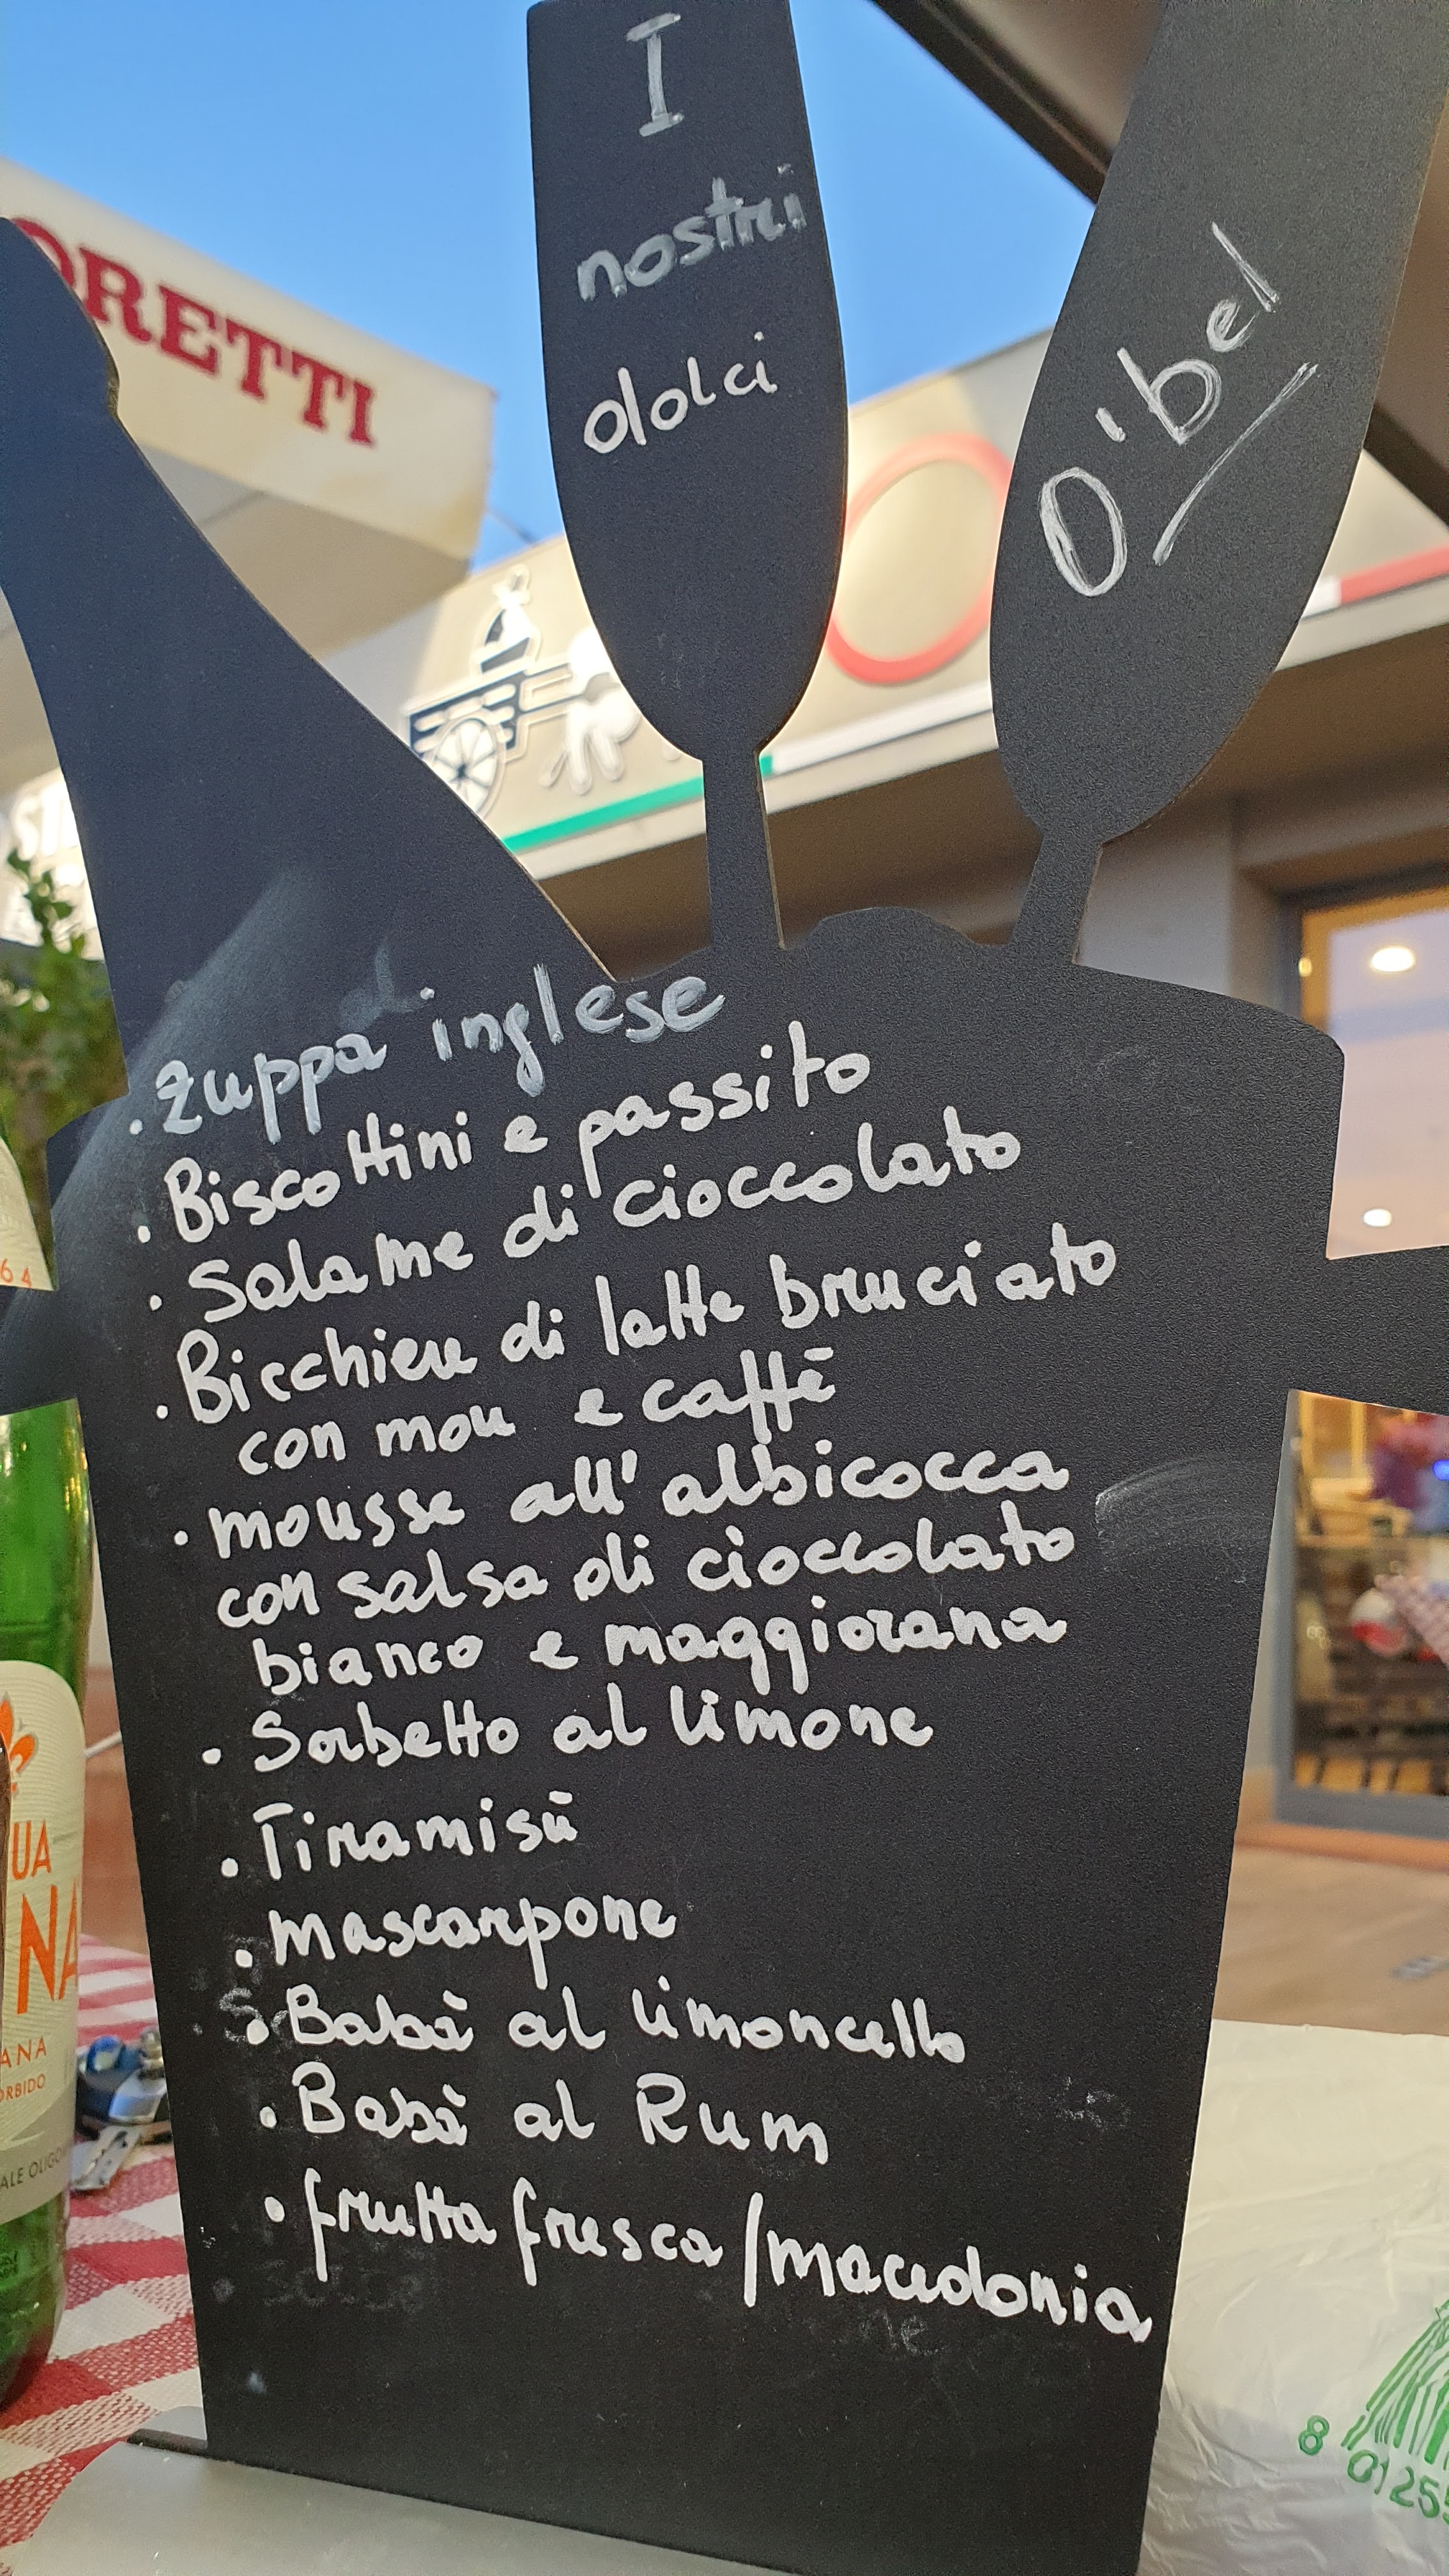 I
nostri
dolci
O'bel
ORETTI
. Zuppa inglese
. Biscottini e passito
. Salame di cioccolato
. Bicchieri di latte bruciato
con mou e caffè
. mousse all'albicocca
con salsa di cioccolato
bianco e maggiorana
. Sorbetto al limone
. Tiramisù
. Mascarpone
. Babà al limoncello
. Babà al Rum
. frutta fresca/macedonia
64
UA
NA
ANA
ORBIDO
ALE OLIGO
8 01255